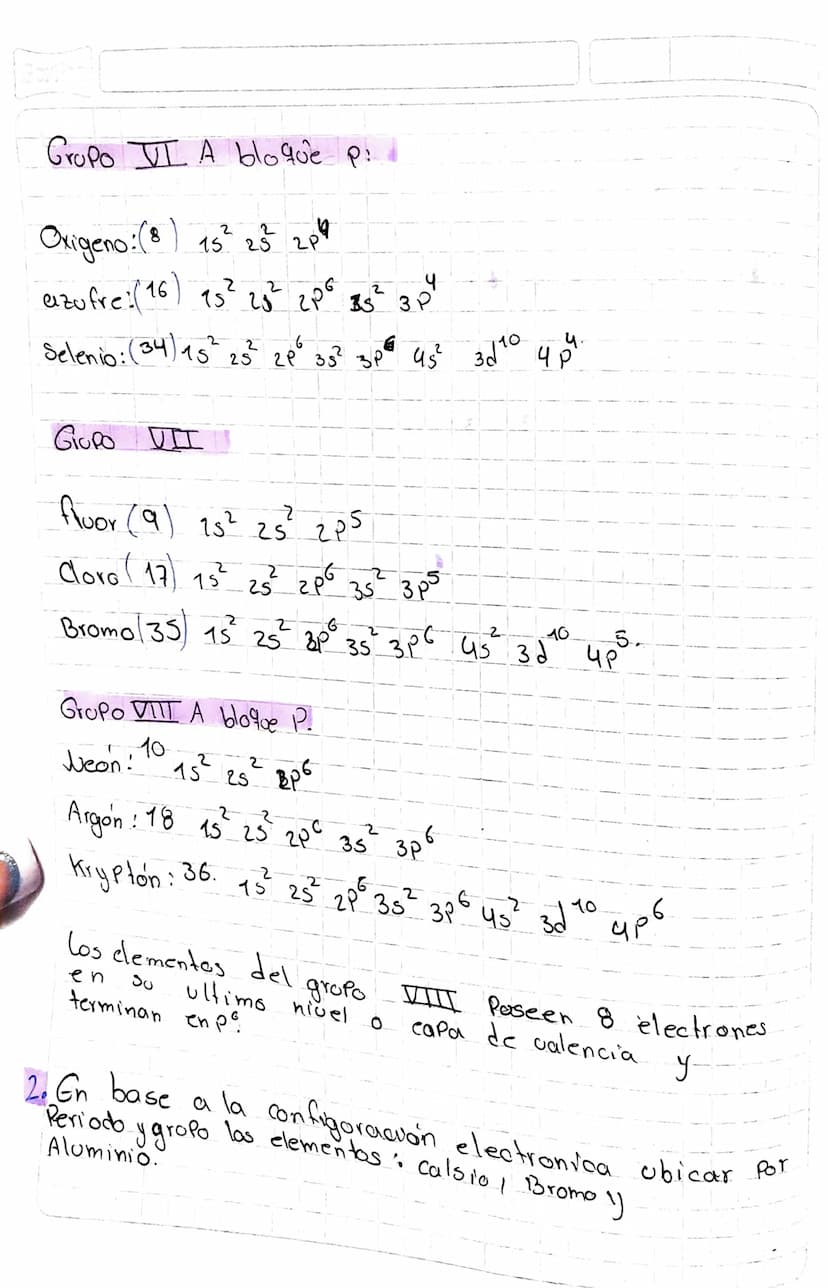 Grupo VI A bloque p:
Oxigeno:(8) 1s² 2s² 2p⁴
azufre:(16) 1s² 2s² 2p⁶ 3s² 3p⁴
Selenio:(34) 1s² 2s² 2p⁶ 3s² 3p⁶ 4s² 3d¹⁰ 4p⁴.
Grupo VII
fluor (9) 1s² 2s² 2p⁵
Cloro (17) 1s² 2s² 2p⁶ 3s² 3p⁵
Bromo (35) 1s² 2s² 2p⁶ 3s² 3p⁶ 4s² 3d¹⁰ 4p⁵.
Grupo VIII A bloque P.
Neón: 10 1s² 2s² 2p⁶
Argón: 18 1s² 2s² 2p⁶ 3s² 3p⁶
Kryptón: 36. 1s² 2s² 2p⁶ 3s² 3p⁶ 4s² 3d¹⁰ 4p⁶
los elementos del grupo VIII Poseen 8 electrones
en su ultimo nivel o capa de valencia y
terminan en p⁶.
2. En base a la configuración electronica ubicar por
Periodo y grupo los elementos: calsio, Bromo y
Aluminio.